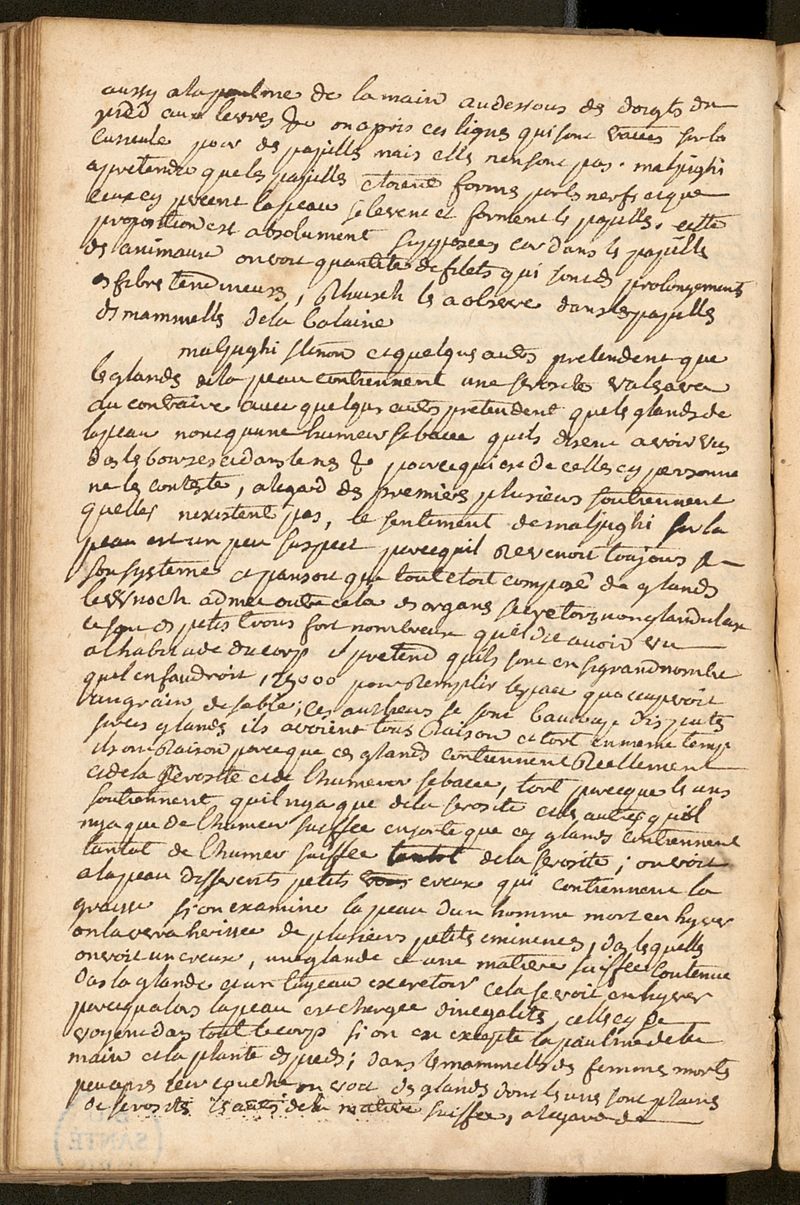 aussy a la paulme de la main audessous des doigts du
pied aux levres &c on a pris ces lignes qui sont tracées sur la
cuticule pour des papilles mais elles nen sont pas. malpighi
a pretendu que les papilles etoient formé par les nerfs et que
ceux cy percent la peau selevent et forment les papilles. cette
proposition est absolument supposées car dans les papilles
des animaux on voit quantité de filets qui sont des prolongements
des fibres tendineuses, Rhuisch les a observe dans les papilles
des mammelles de la balaine
malpighi stenon et quelques autres pretendent que
les glandes de la peau contiennent une serosité valsava
au contraire avec quelques autres pretendent que les glandes de
la peau nont quune humeur sebacee quils disent avoir vus
das les bourses et dans le nes &c pour ce qui est de celles cy personne
ne les conteste, a legard des premieres plusieurs soutiennent
quelles nexistent pas, le sentiment de malpighi sur la
peau est un peu suspect parcequil Revenoit toujours a
son systeme et pansoit que tout etoit composé de glandes
lewnoek admet outre cela des organes secretoires non glandulaux
ce sont des petits trous fort nombreux quil dit avoir vu
a lhabitude du corp il pretend quils sont en si grand nombre
quil en faudroit 125000 pour Remplir lespace quoccuperoit
un grain de sable; ces autheurs se sont beaucoup disputés
sur ces glandes ils avoient tous Raison et tort en meme temp
ils ont Raison parce que ces glandes contiennent Reellement
et de la serosité et de lhumeur sebacee, tort parceque les uns
soutiennent quil nya que de la serosité et les autres quil
nya que de lhumeur suiffee en sorte que ces glandes contiennent
tantot de lhumeur suiffee tantot de la serosité; on voit
a la peau differents petits creux qui contiennent la
graisse si on examine la peau dun homme mort en hyver
on la verra herissee de plusieurs petites eminences, das lesquelles
on voit un creux, une glande et une matiere suiffee contenue
das la glande et un tuyeau excretoir cela se voit en hyver
parcequalors la peau est chargee dinegalités celles cy se
voyent das tout le corp si on en excepte la paulme de la
main et la plante des pieds; dans les mammelles des femmes mortes
peu apres leur couche on voit des glandes dont les unes sont pleines
de serosité les autres de la matiere suiffee, a legard de
SANTÉ